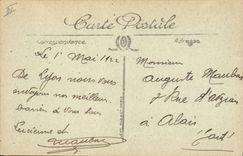 Carte Postale
Correspondance
Adresse
Le 1er Mai 1922
De Lyon nous vous
envoyons nos meilleurs
baisers à vous deux
Lucienne et
Monsieur
Auguste
Rue
à Alais
(Gard)